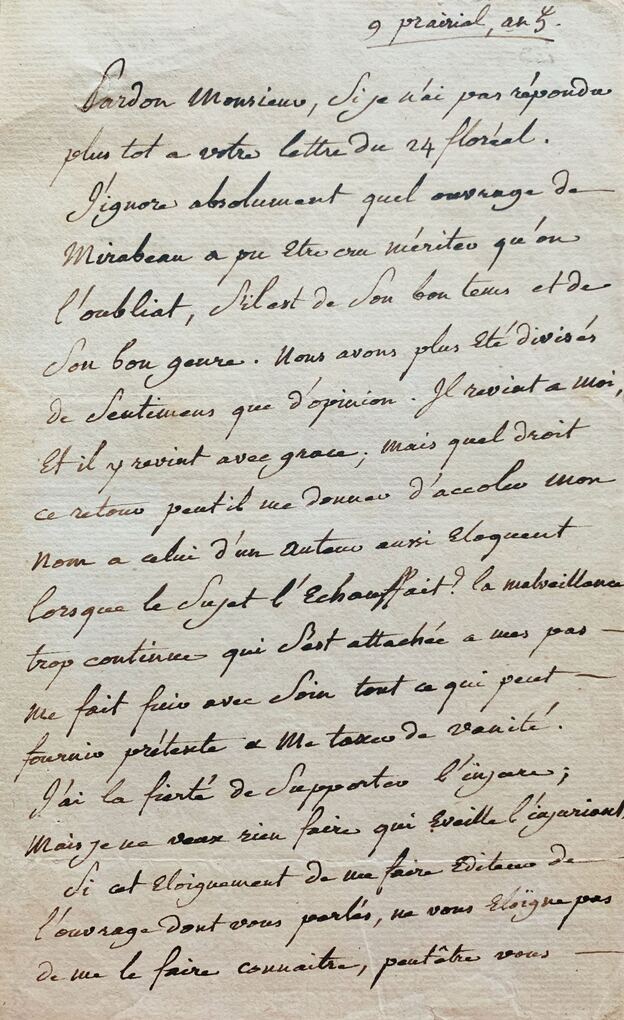 9 prairial, an 5.
Pardon Monsieur, Si je n'ai pas répondu
plus tot a votre lettre du 24 floréal.
J'ignore absolument quel ouvrage de
Mirabeau a pu Etre cru mériter qu'on
l'oubliat, S'il est de Son bon tems et de
Son bon genre. Nous avons plus Eté divisés
de Sentimens que d'opinion. Il revint a moi,
Et il y revint avec grace; mais quel droit
ce retour peut il me donner d'accoler mon
Nom a celui d'un Auteur aussi Eloquent
lorsque le Sujet l'Echauffait? la malveillance
trop continue qui S'est attachée a mes pas
me fait fuir avec Soin tout ce qui peut
fournir prétexte a Me taxer de vanité.
J'ai la fierté de Supporter l'injure;
Mais je ne veux rien faire qui Eveille l'injuriant,
Si cet Eloignement de me faire Editeur de
l'ouvrage dont vous parlés, ne vous Eloïgne pas
de me le faire connaitre, peutêtre vous